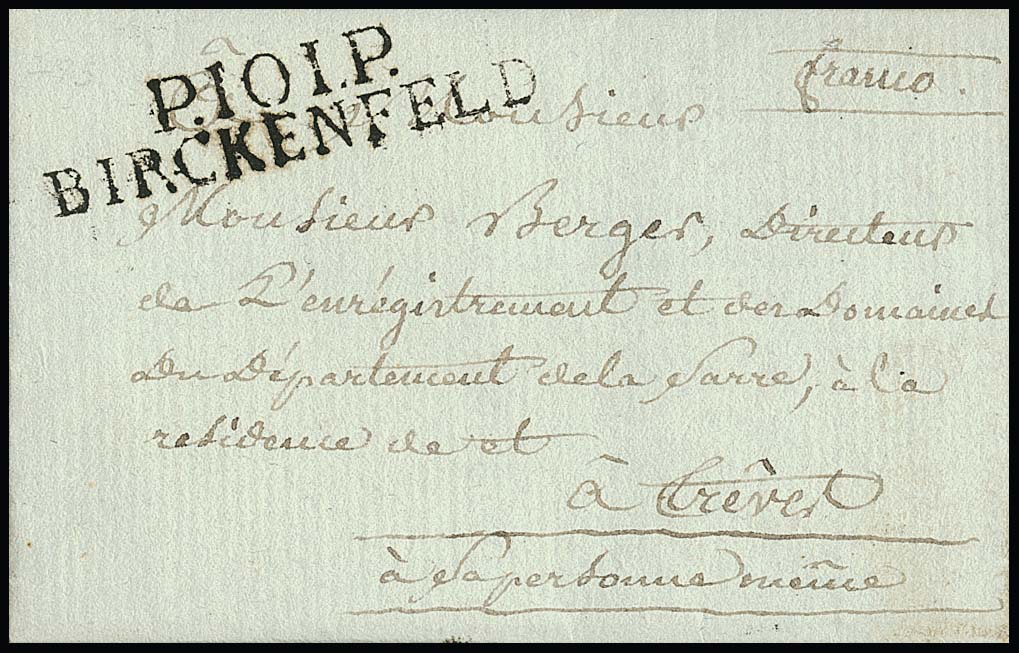 P.101.P.
BIRCKENFELD
franco.
A Monsieur
Monsieur Berger, Directeur
de L'enrégistrement et des Domaines
Du Département de la Sarre, à la
residence de et
à Trêves
à Sa personne même